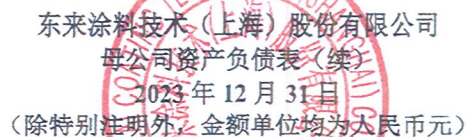 东来涂料技术（上海）股份有限公司
母公司资产负债表（续）
2023 年 12 月 31 日
（除特别注明外，金额单位均为人民币元）